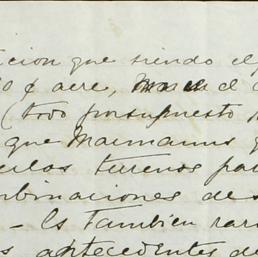 cion que siendo el
¢ acre, el
(todo por supuesto
que Maimanus
los terrenos pa
binaciones de
- Es tambien rar
antecedentes de